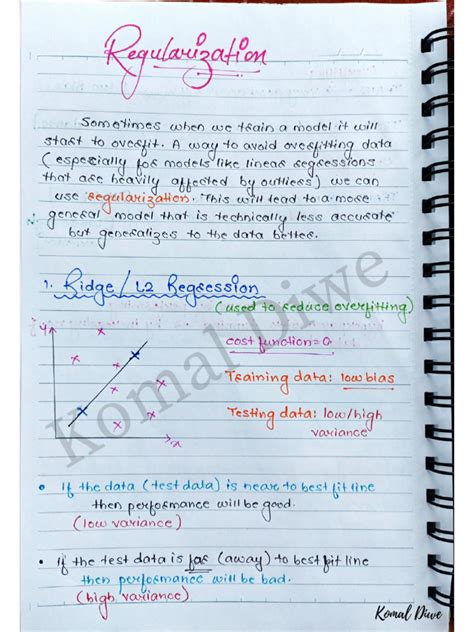 Regularization
Sometimes when we train a model it will
start to overfit. A way to avoid overfitting data
(especially for models like linear regressions
that are heavily affected by outliers) we can
use regularization. This will lead to a more
general model that is technically less accurate
but generalizes to the data better.
1. Ridge / L2 Regression
(used to reduce overfitting)
y
cost function=0
Training data: low bias
Testing data: low/high
variance
x
• If the data (test data) is near to best fit line
then performance will be good.
(low variance)
• If the test data is far (away) to best fit line
then performance will be bad.
(high variance)
Komal Diwe
Komal Diwe